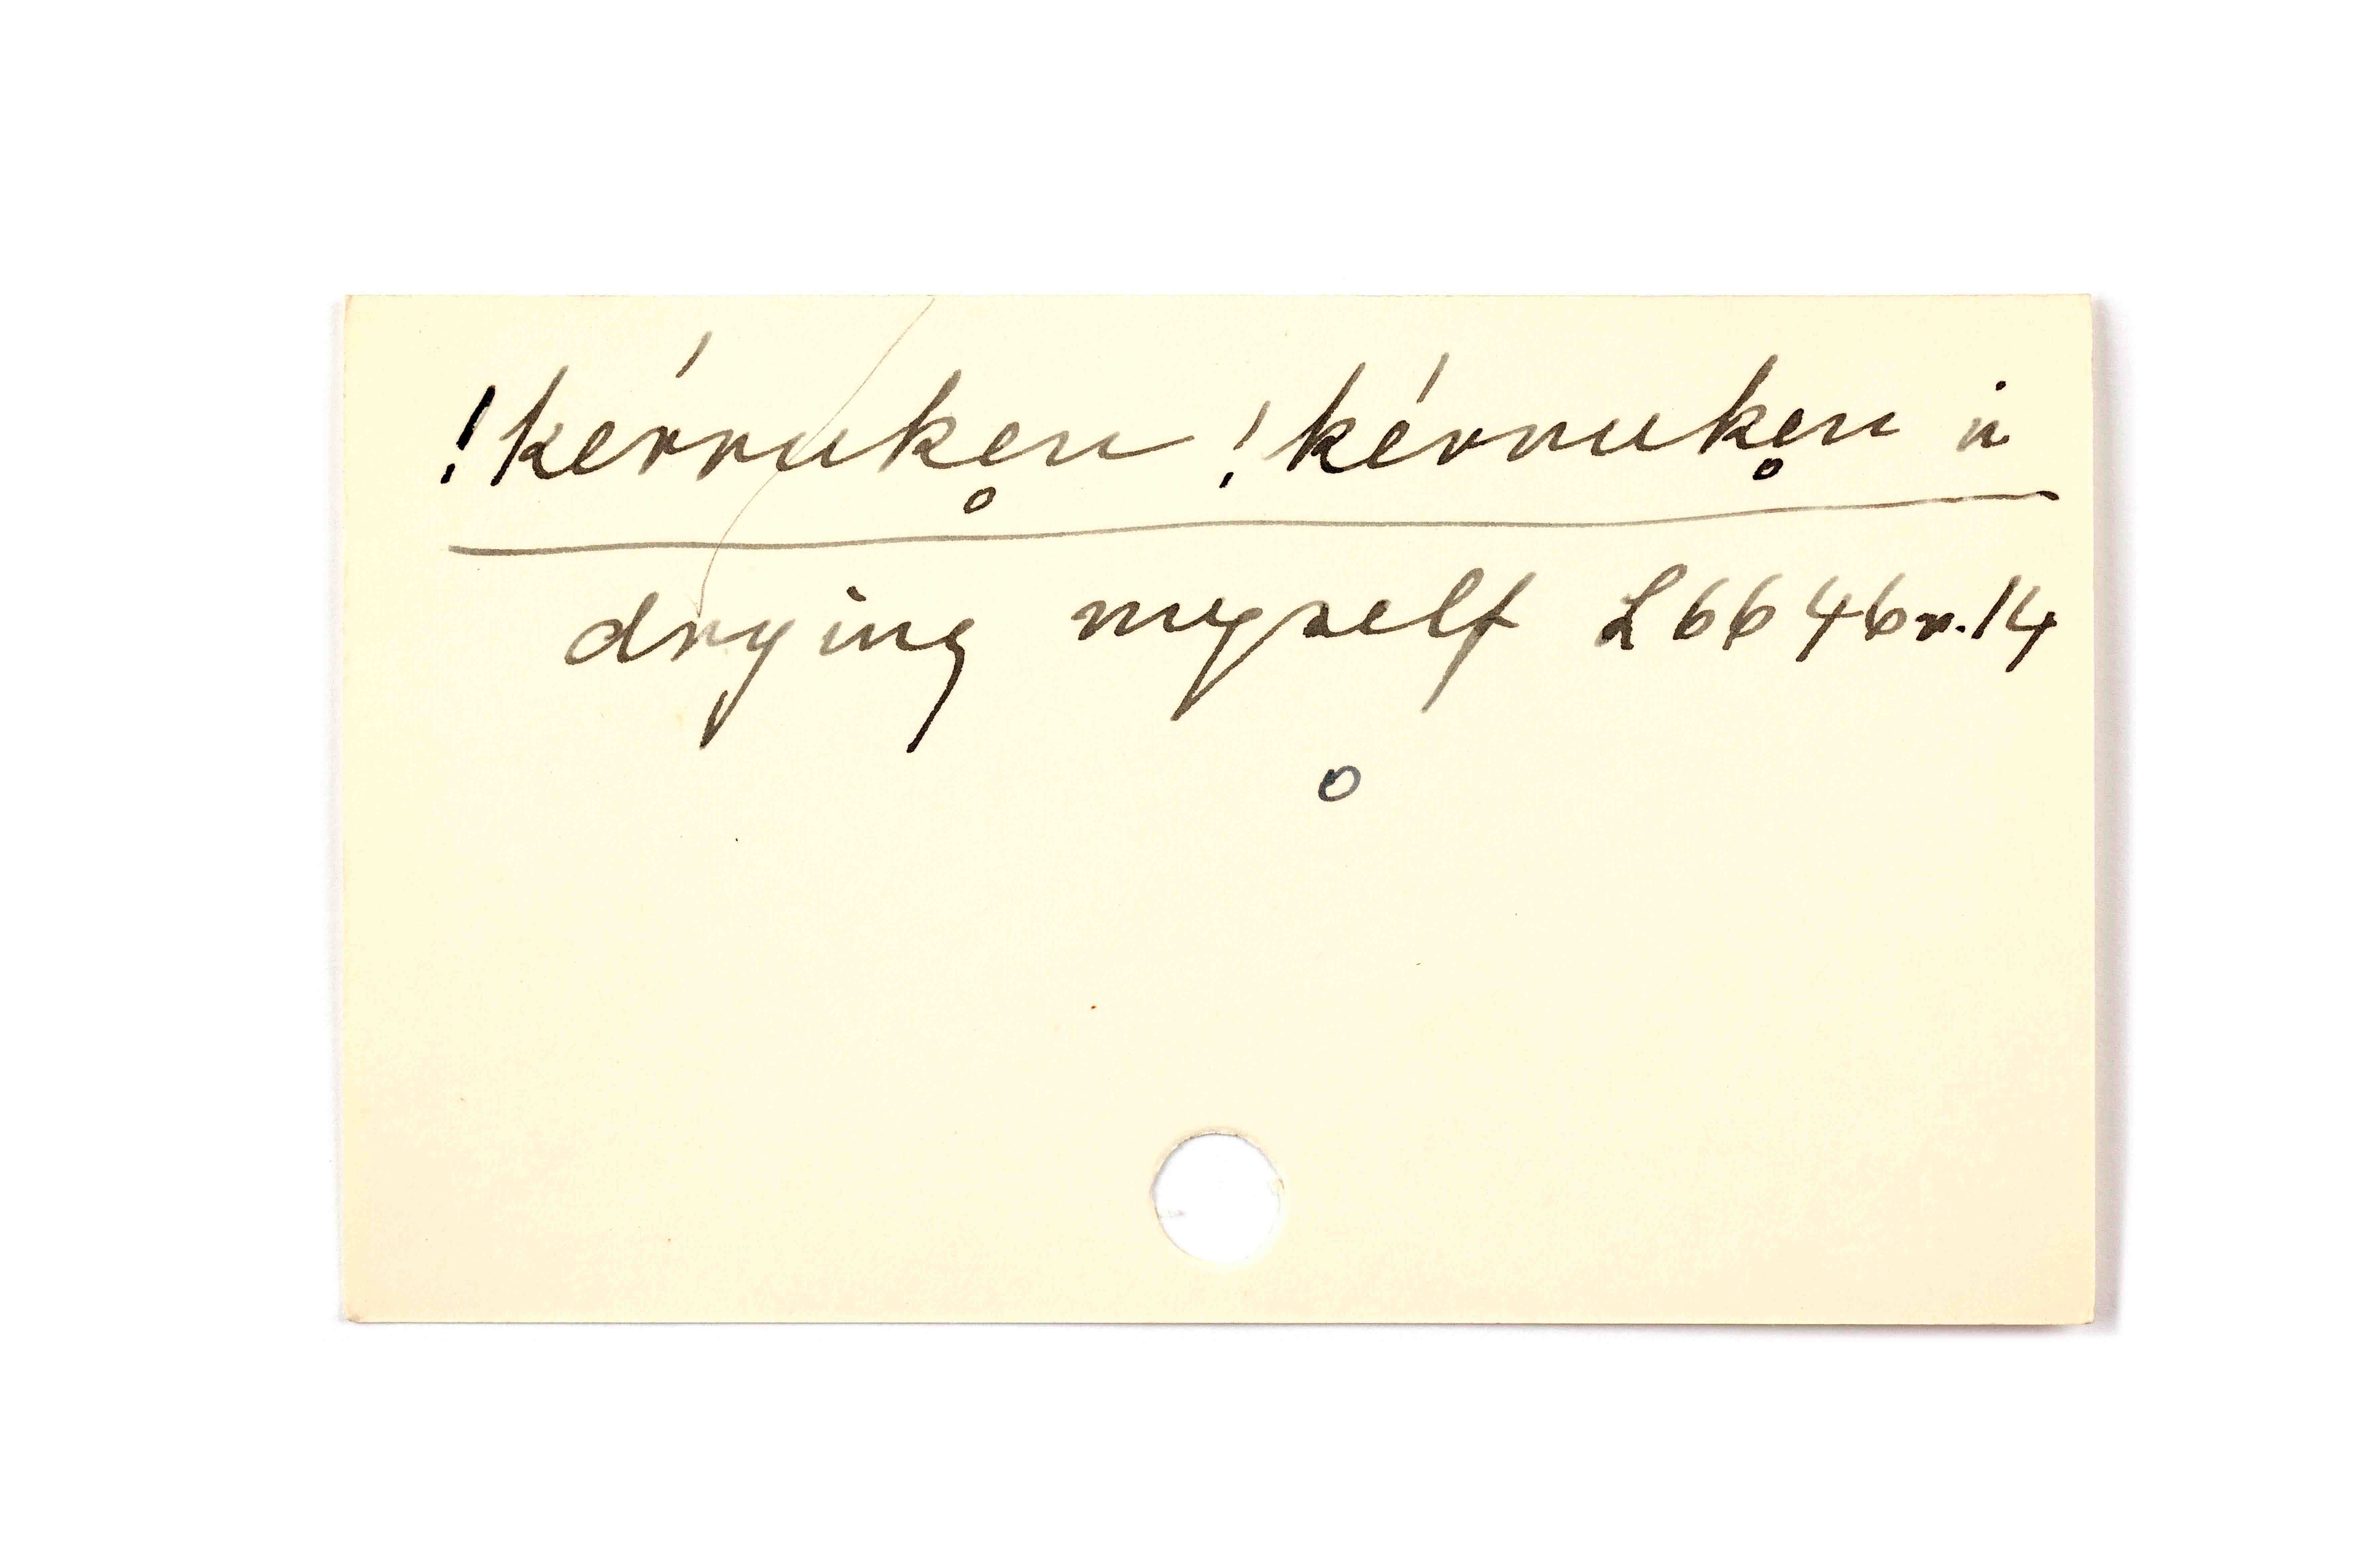 !kérruke̥n !kérruke̥n ıṅ
drying myself L6646r.14
o